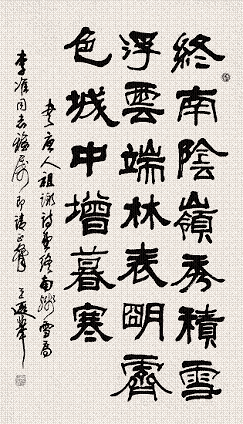 終南陰嶺秀積雪
浮雲端林表明霽
色城中增暮寒
書唐人祖詠詩望終南雪為
李準同志屬即請正 王遐舉